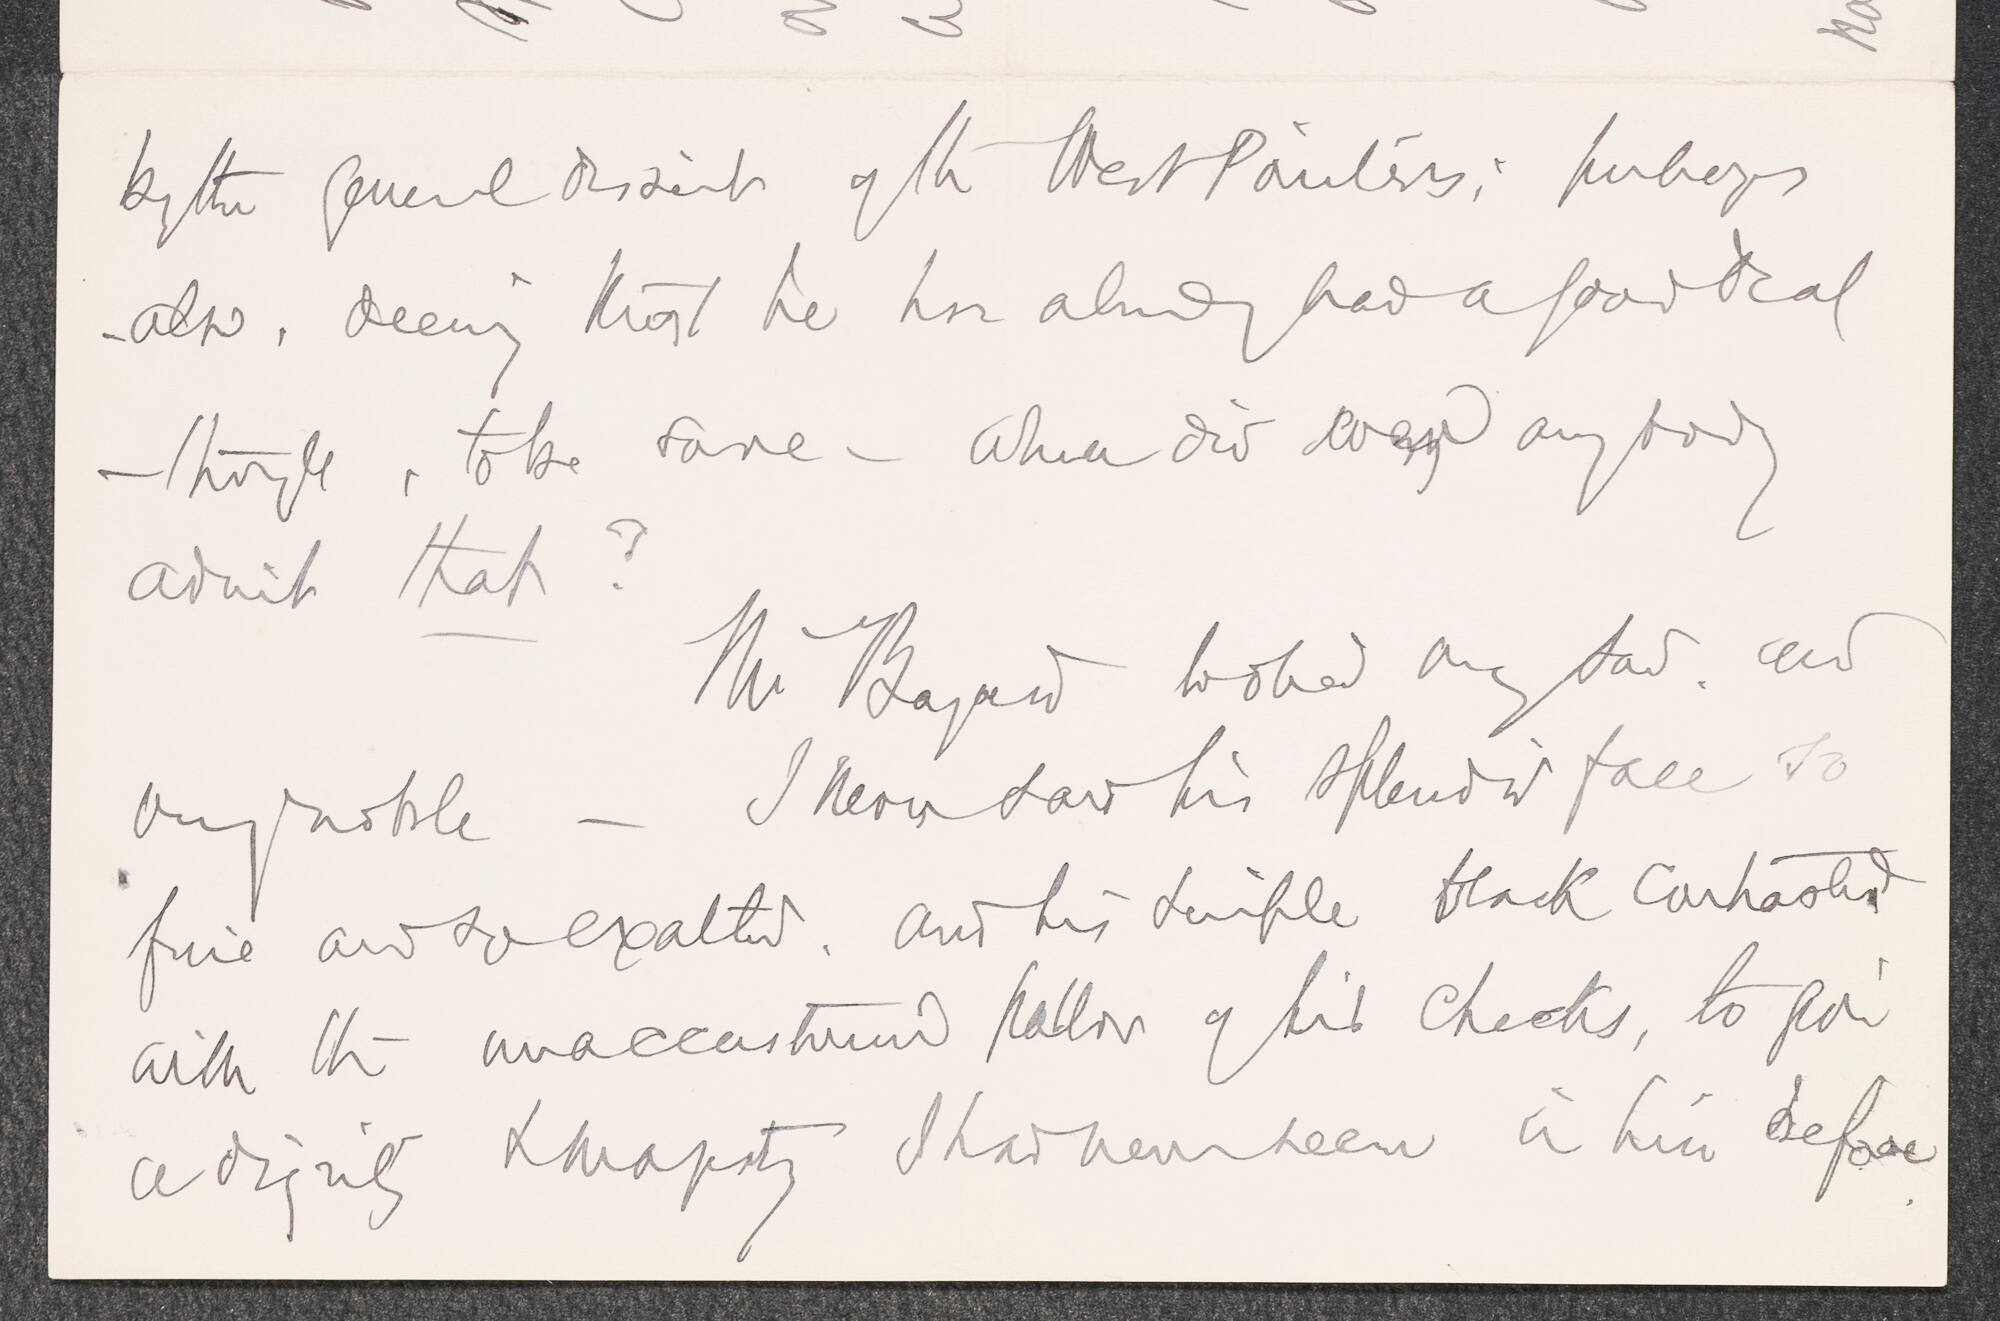 by the general dissent of the West Pointers; perhaps
also, seeing that he has already had a good deal
— though, to be sure — when did ever anybody
admit that?
Mr Bayard looked very sad. and
very noble — I never saw his splendid face so
fine and so exalted. and his simple black contrasted
with the unaccustomed pallor of his cheeks, to give
a dignity & majesty I had never seen in him before.